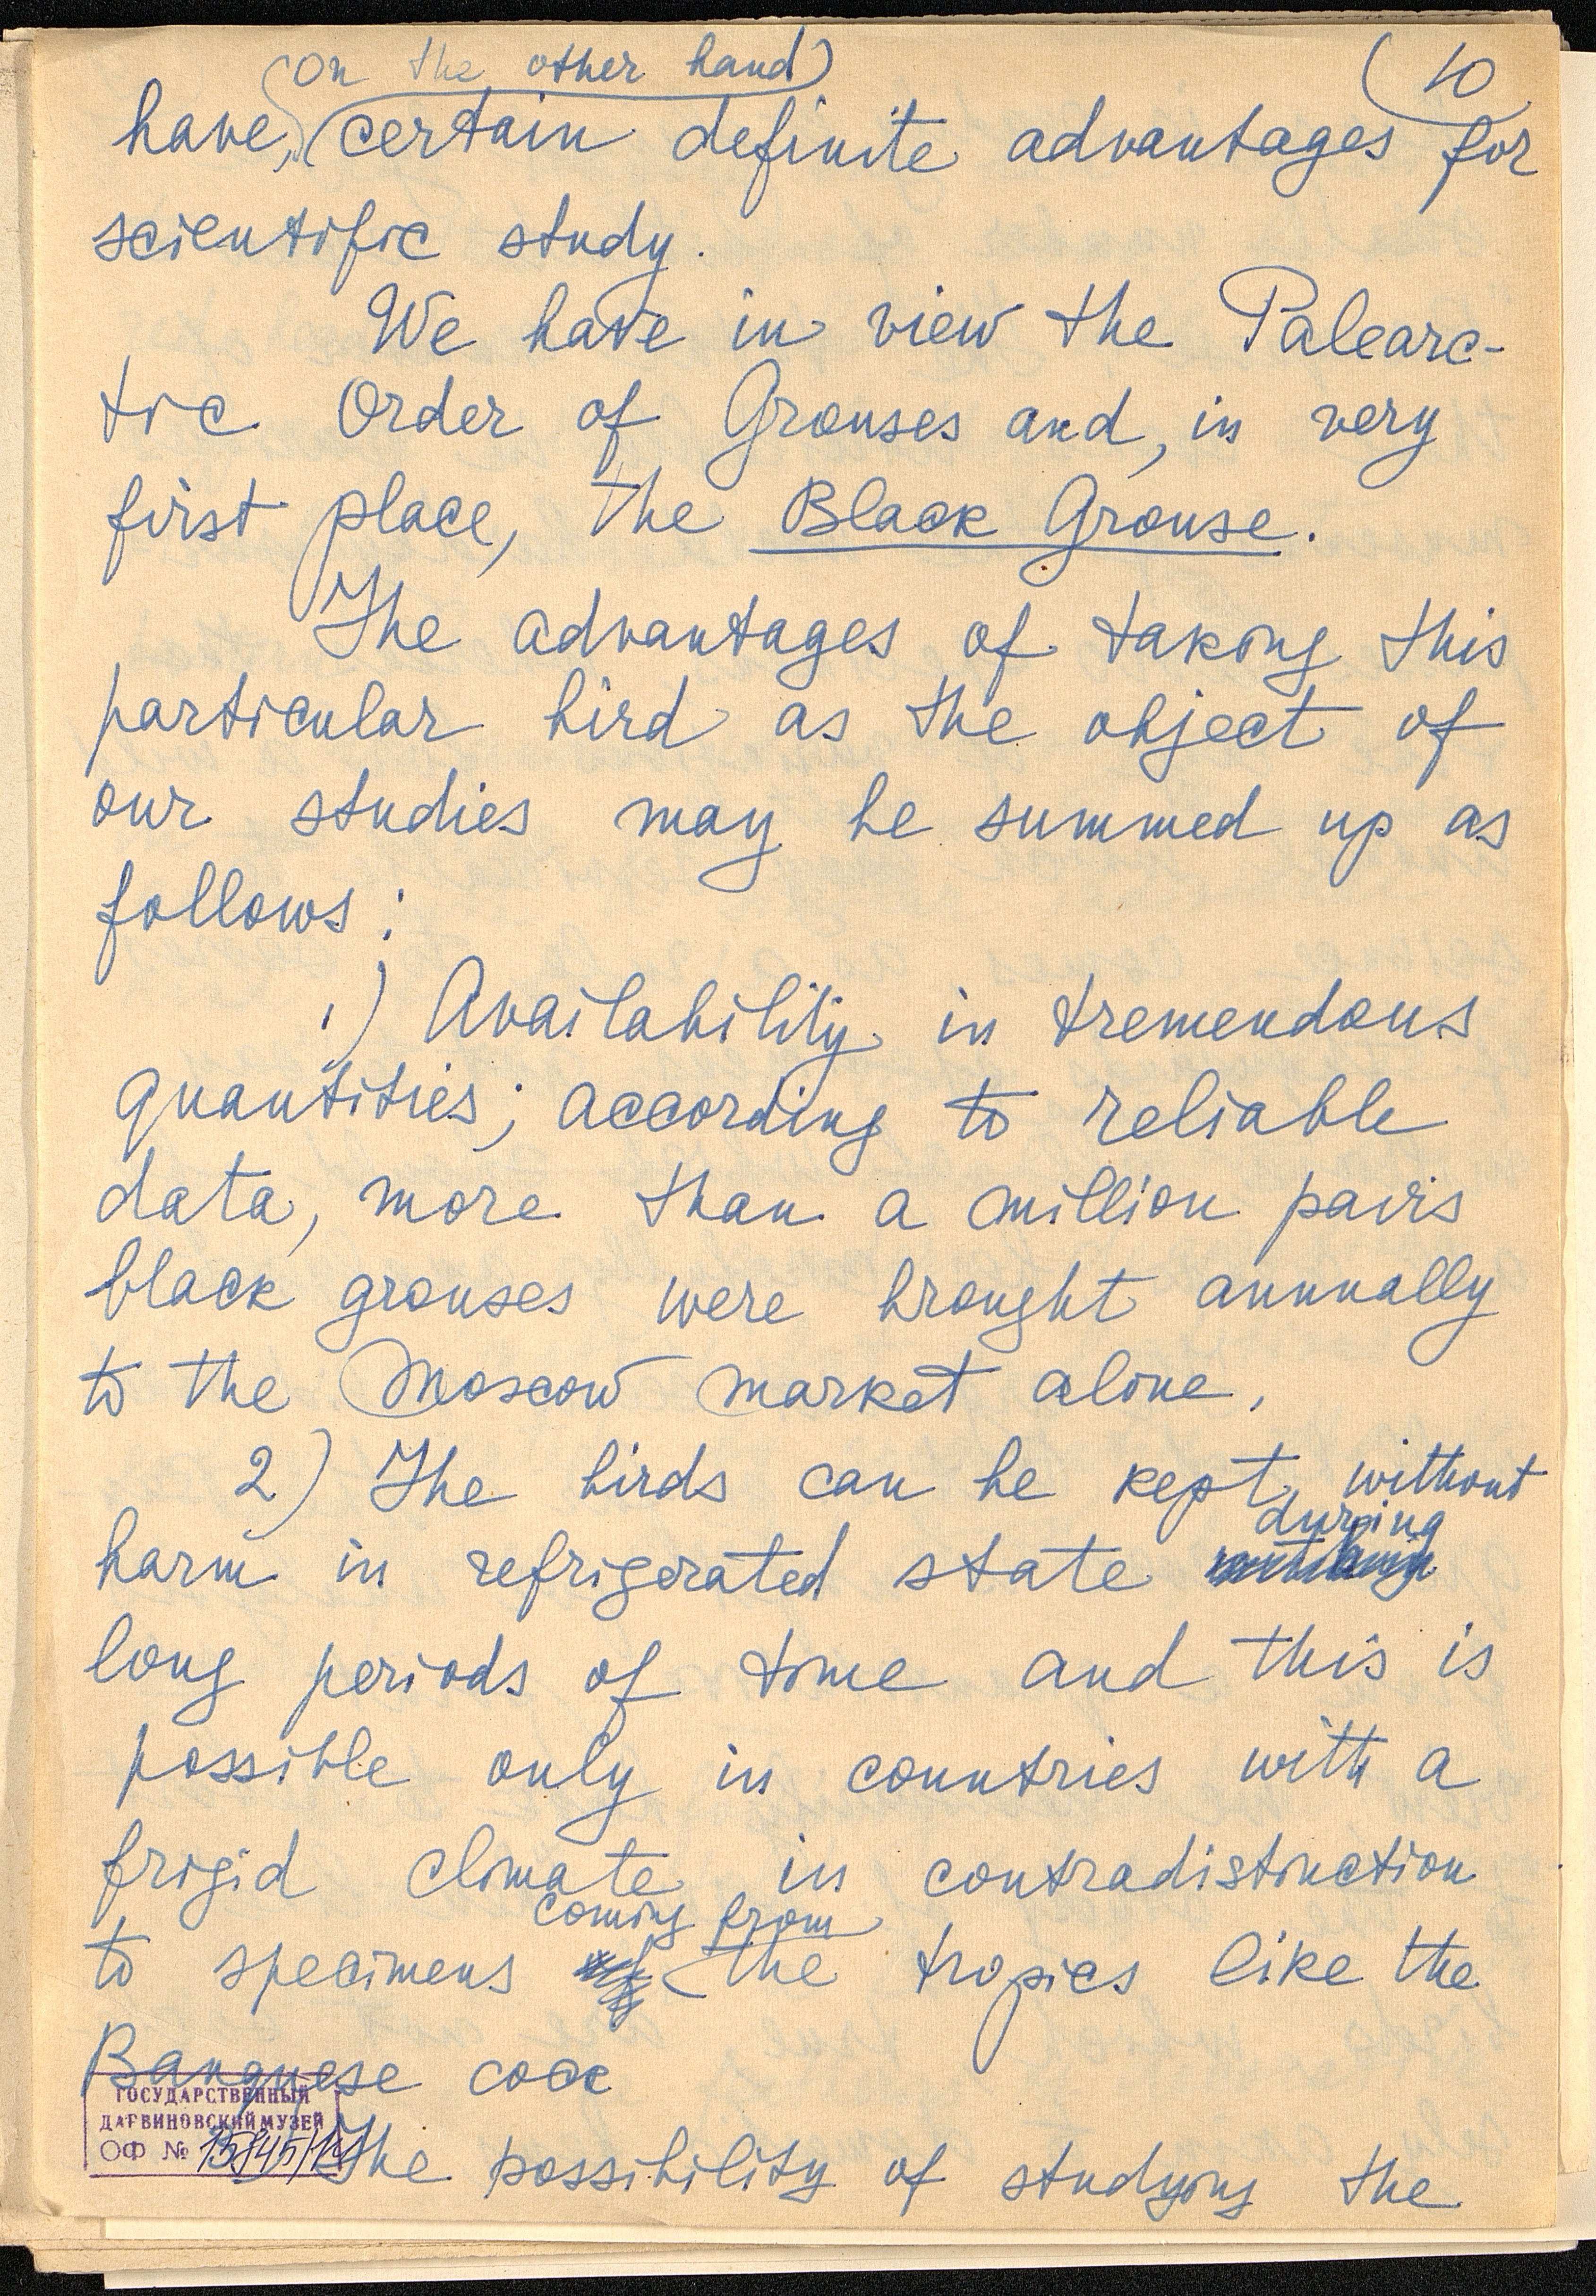 (on the other hand)
(10
have, certain definite advantages for
scientific study.
We have in view the Palearc-
tic Order of Grouses and, in very
first place, the Black Grouse.
The advantages of taking this
particular bird as the object of
our studies may be summed up as
follows:
1) Availability in tremendous
quantities; according to reliable
data, more than a million pairs
black grouses were brought annually
to the Moscow market alone.
2) The birds can be kept, without
during
harm in refrigerated state
long periods of time and this is
possible only in countries with a
frigid climate in contradistinction
coming from
to specimens the tropics like the
cock
ГОСУДАРСТВЕННЫЙ
ДАРВИНОВСКИЙ МУЗЕЙ
ОФ №
The possibility of studying the